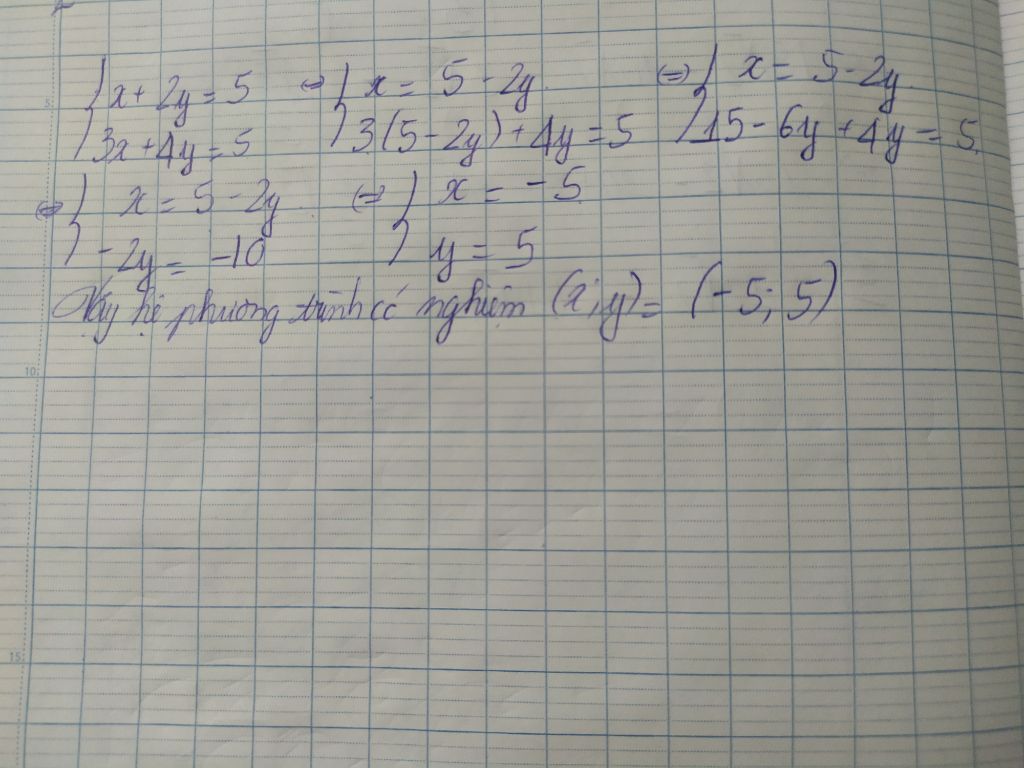 { x + 2y = 5 ⇔ { x = 5 - 2y ⇔ { x = 5 - 2y
{ 3x + 4y = 5 { 3(5 - 2y) + 4y = 5 { 15 - 6y + 4y = 5
⇔ { x = 5 - 2y ⇔ { x = -5
{ -2y = -10 { y = 5
Vậy hệ phương trình có nghiệm (x; y) = (-5; 5)
5
10
15